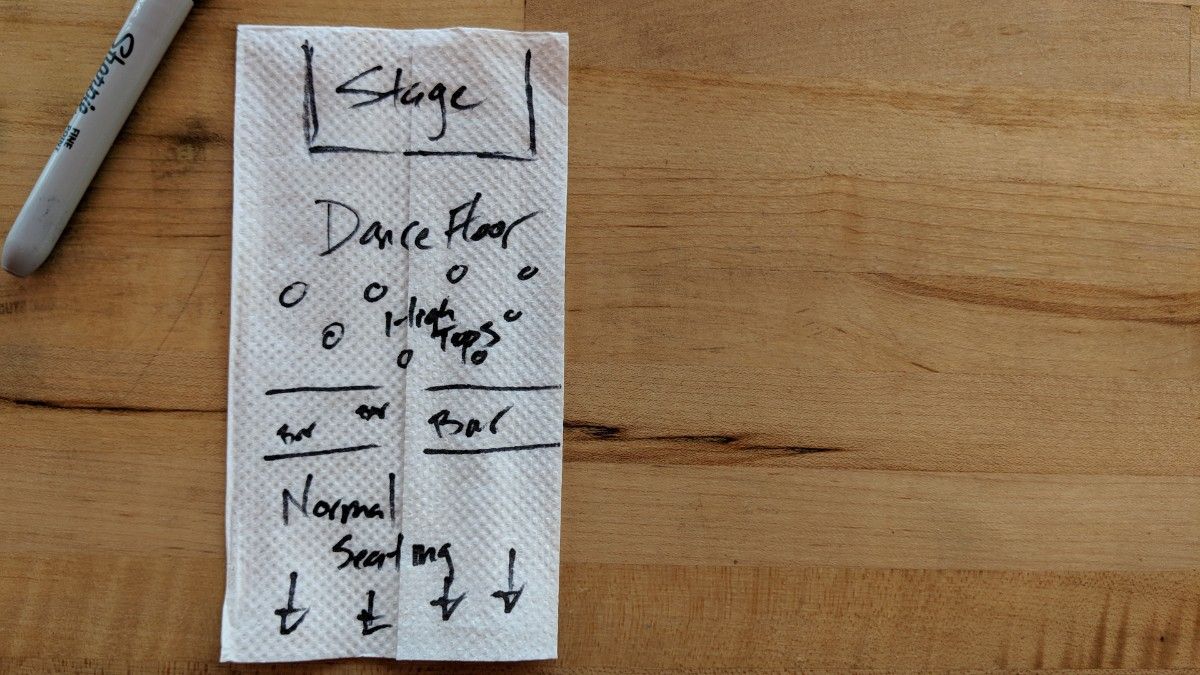 Sharpie
FINE
POINT
Stage
Dance Floor
High
Tops
Bar
Bar
Bar
Normal
Seating